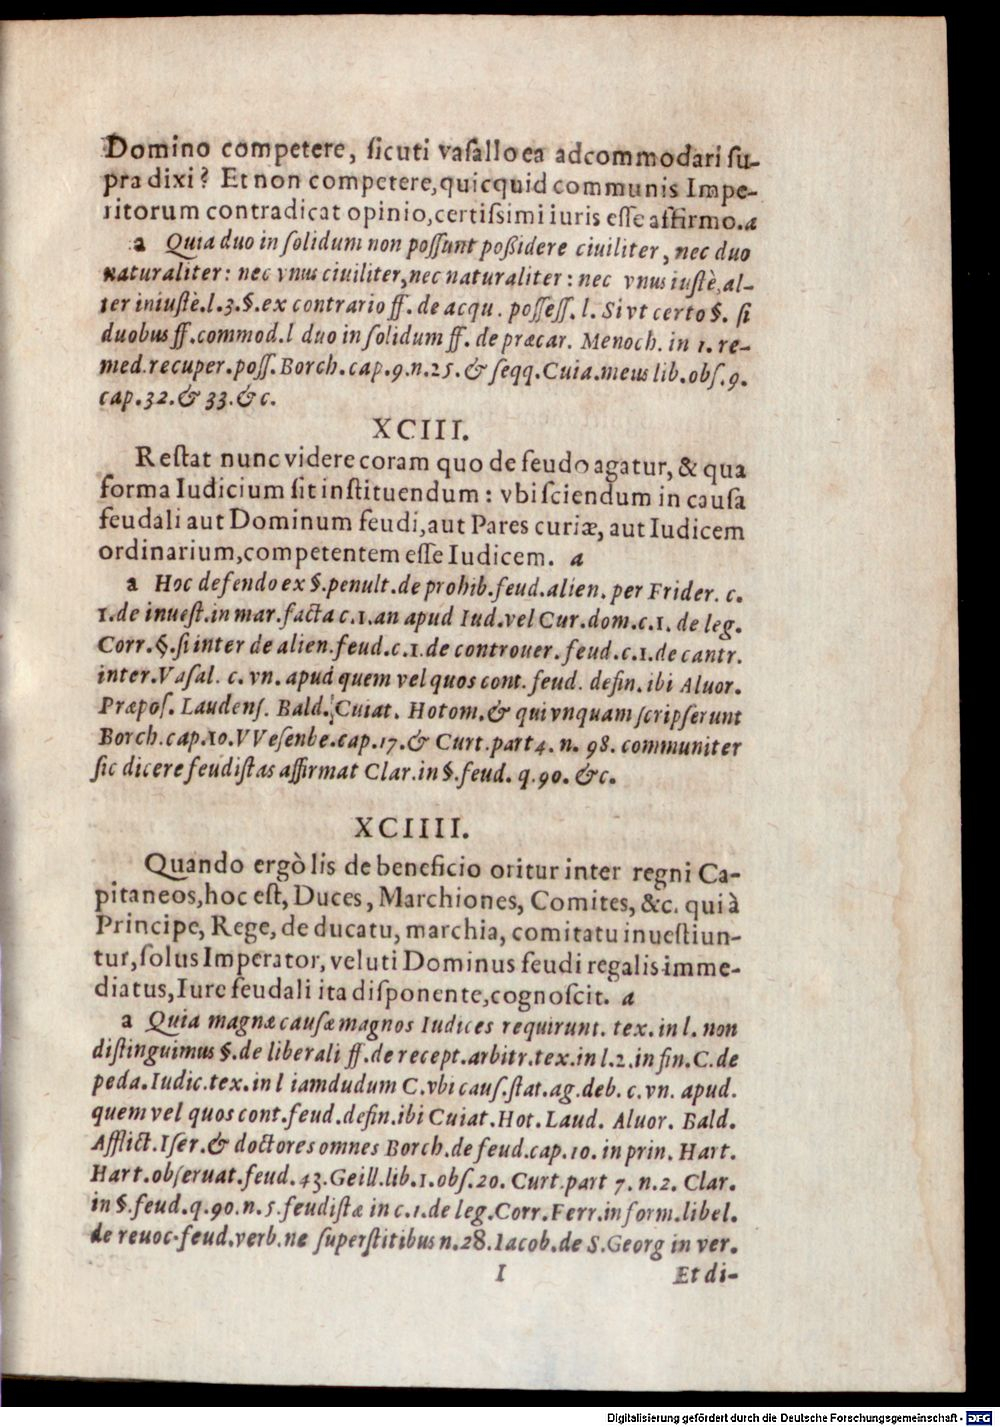 Domino competere, ſicuti vaſallo ea adcommodari ſu-
pra dixi? Et non competere, quicquid communis Impe-
ritorum contradicat opinio, certiſsimi iuris eſſe affirmo. a
a Quia duo in ſolidum non poſſunt poßidere ciuiliter, nec duo
naturaliter: nec vnus ciuiliter, nec naturaliter: nec vnus iuſtè, al-
ter iniuſtè. l. 3. §. ex contrario ff. de acqu. poſſeſſ. l. Si vt certo §. ſi
duobus ff. commod. l duo in ſolidum ff. de præcar. Menoch. in 1. re-
med. recuper. poſſ. Borch. cap. 9. n. 25. & ſeqq. Cuia. meus lib. obſ. 9.
cap. 32. & 33. & c.
XCIII.
Reſtat nunc videre coram quo de feudo agatur, & qua
forma Iudicium ſit inſtituendum: vbi ſciendum in cauſa
feudali aut Dominum feudi, aut Pares curiæ, aut Iudicem
ordinarium, competentem eſſe Iudicem. a
a Hoc defendo ex §. penult. de prohib. feud. alien. per Frider. c.
1. de inueſt. in mar. facta c. 1. an apud Iud. vel Cur. dom. c. 1. de leg.
Corr. §. ſi inter de alien. feud. c. 1. de controuer. feud. c. 1. de cantr.
inter. Vaſal. c. vn. apud quem vel quos cont. feud. defin. ibi Aluor.
Præpoſ. Laudenſ. Bald. Cuiat. Hotom. & qui vnquam ſcripſerunt
Borch. cap. 10. VVeſenbe. cap. 17. & Curt. part 4. n. 98. communiter
ſic dicere feudiſtas affirmat Clar. in §. feud. q. 90. &c.
XCIIII.
Quando ergò lis de beneficio oritur inter regni Ca-
pitaneos, hoc eſt, Duces, Marchiones, Comites, &c. qui à
Principe, Rege, de ducatu, marchia, comitatu inueſtiun-
tur, ſolus Imperator, veluti Dominus feudi regalis imme-
diatus, Iure feudali ita diſponente, cognoſcit. a
a Quia magnæ cauſæ magnos Iudices requirunt. tex. in l. non
diſtinguimus §. de liberali ff. de recept. arbitr. tex. in l. 2. in fin. C. de
peda. Iudic. tex. in l iamdudum C. vbi cauſ. ſtat. ag. deb. c. vn. apud.
quem vel quos cont. feud. defin. ibi Cuiat. Hot. Laud. Aluor. Bald.
Afflict. Iſer. & doctores omnes Borch. de feud. cap. 10. in prin. Hart.
Hart. obſeruat. feud. 43. Geill. lib. 1. obſ. 20. Curt. part 7. n. 2. Clar.
in §. feud. q. 90. n. 5. feudiſtæ in c. 1. de leg. Corr. Ferr. in form. libel.
de reuoc. feud. verb. ne ſuperſtitibus n. 28. Iacob. de S. Georg in ver.
I Et di-
Digitalisierung gefördert durch die Deutsche Forschungsgemeinschaft - DFG